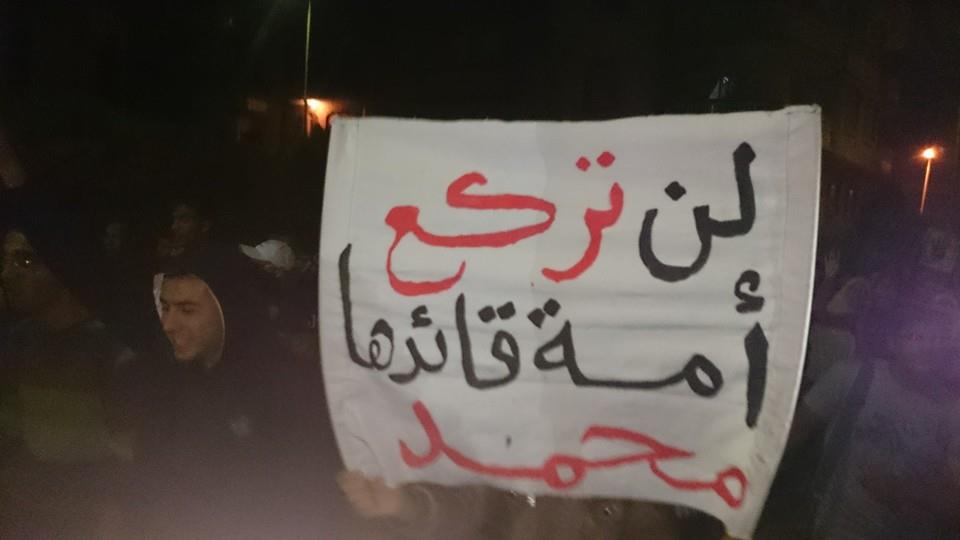 لن تركع
أمة قائدها
محمد